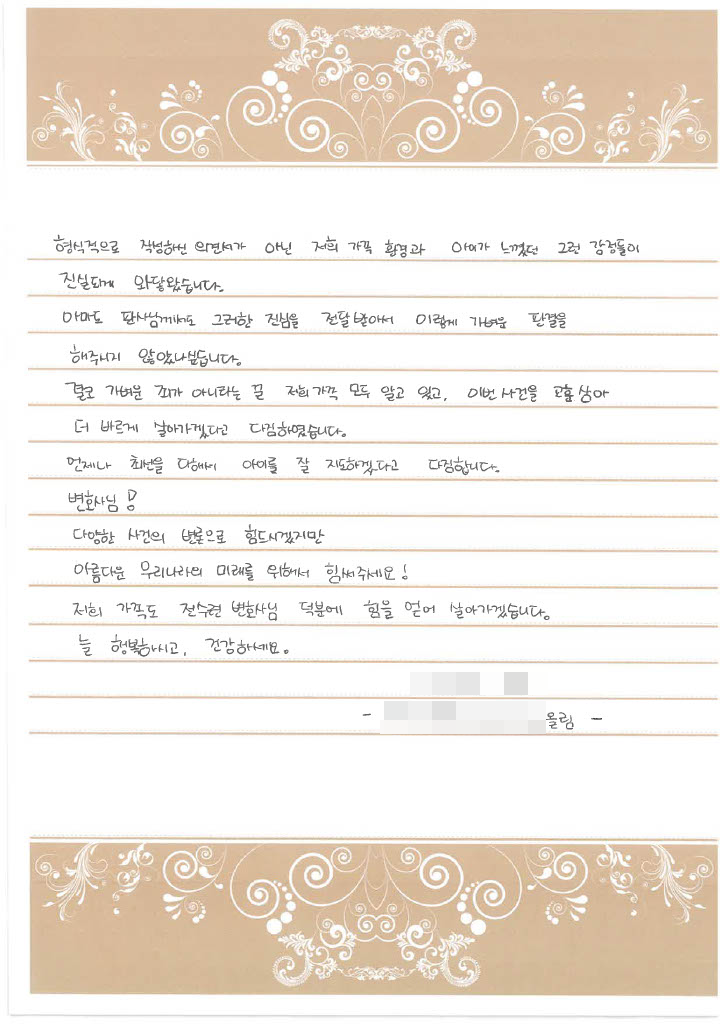 형식적으로 작성하신 의견서가 아닌 저희 가족 환경과 아이가 느꼈던 그런 감정들이
진실되게 와닿았습니다.
아마도 판사님께서도 그러한 진심을 전달받아서 이렇게 가벼운 판결을
해주시지 않았나싶습니다.
결코 가벼운 죄가 아니라는 걸 저희가족 모두 알고 있고, 이번 사건을 교훈삼아
더 바르게 살아가겠다고 다짐하였습니다.
언제나 최선을 다해서 아이를 잘 지도하겠다고 다짐합니다.
변호사님!
다양한 사건의 변론으로 힘드시겠지만
아름다운 우리나라의 미래를 위해서 힘써주세요!
저희 가족도 전수련 변호사님 덕분에 힘을 얻어 살아가겠습니다.
늘 행복하시고, 건강하세요.
- 올림 -